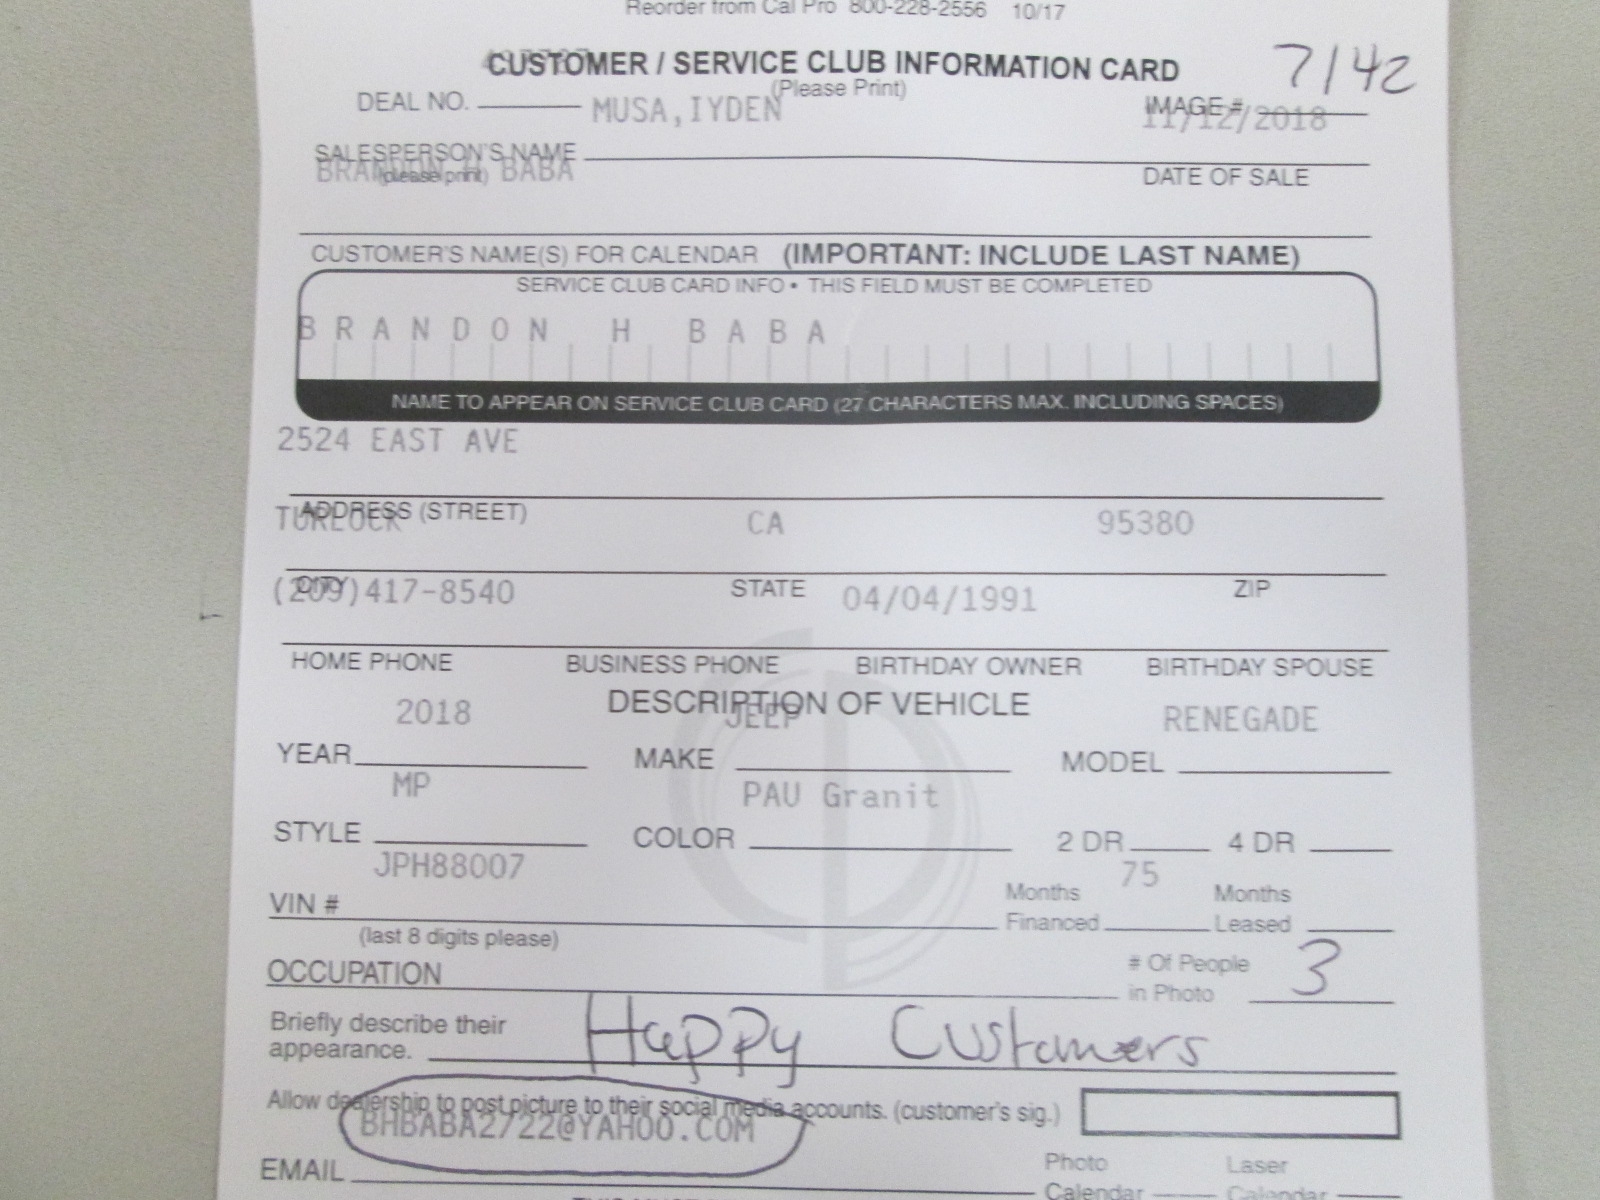 Reorder from Cal Pro 800-228-2556 10/17
CUSTOMER / SERVICE CLUB INFORMATION CARD
7142
(Please Print)
DEAL NO. MUSA,IYDEN IMAGE #
11/12/2018
SALESPERSON'S NAME
(please print) BRANDON H BABA
DATE OF SALE
CUSTOMER'S NAME(S) FOR CALENDAR (IMPORTANT: INCLUDE LAST NAME)
SERVICE CLUB CARD INFO • THIS FIELD MUST BE COMPLETED
BRANDON H BABA
NAME TO APPEAR ON SERVICE CLUB CARD (27 CHARACTERS MAX. INCLUDING SPACES)
2524 EAST AVE
ADDRESS (STREET)
TURLOCK CA 95380
CITY STATE ZIP
(209)417-8540 04/04/1991
HOME PHONE BUSINESS PHONE BIRTHDAY OWNER BIRTHDAY SPOUSE
DESCRIPTION OF VEHICLE
2018 JEEP RENEGADE
YEAR MAKE MODEL
MP PAU Granit
STYLE COLOR 2 DR 4 DR
JPH88007 75
VIN # Months Financed Months Leased
(last 8 digits please)
OCCUPATION # Of People in Photo 3
Briefly describe their
appearance. Happy Customers
Allow dealership to post picture to their social media accounts. (customer's sig.)
BHBABA2722@YAHOO.COM
EMAIL Photo Calendar Laser Calendar